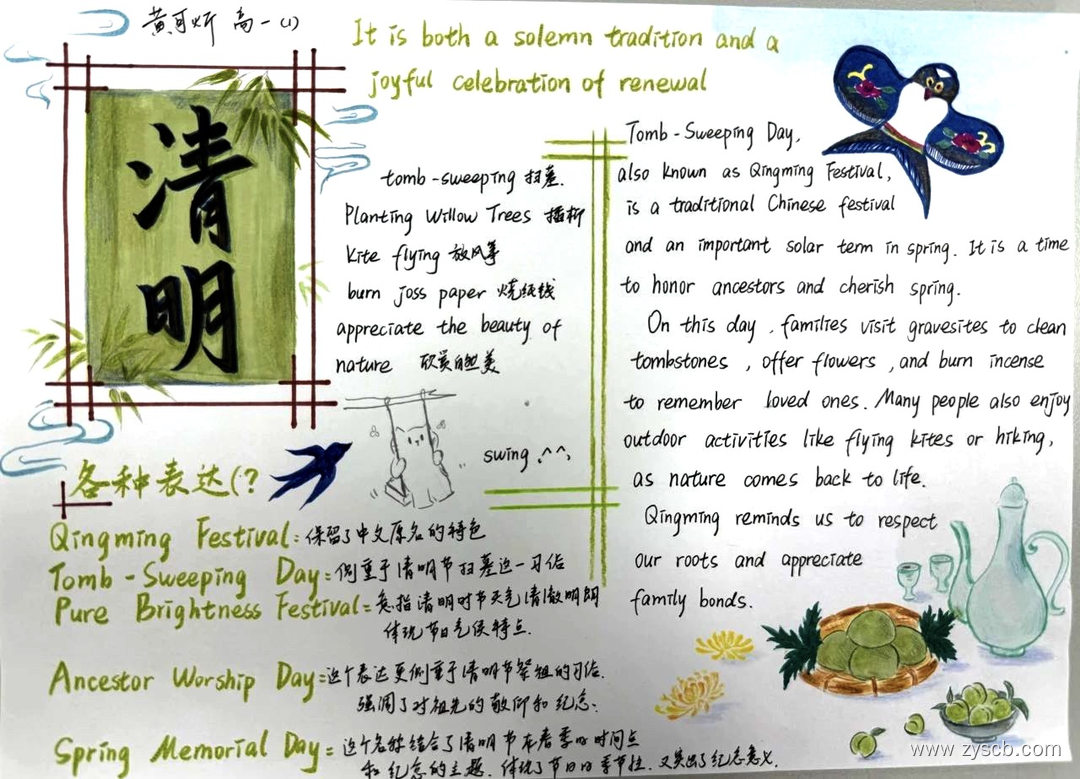 黄可炘 高一(1)
It is both a solemn tradition and a
joyful celebration of renewal
清明
tomb-sweeping 扫墓.
Planting Willow Trees 插柳
Kite flying 放风筝
burn joss paper 烧纸钱
appreciate the beauty of
nature 欣赏自然美
swing ^^
Tomb-Sweeping Day,
also known as Qingming Festival,
is a traditional Chinese festival
and an important solar term in spring. It is a time
to honor ancestors and cherish spring.
On this day, families visit gravesites to clean
tombstones, offer flowers, and burn incense
to remember loved ones. Many people also enjoy
outdoor activities like flying kites or hiking,
as nature comes back to life.
Qingming reminds us to respect
our roots and appreciate
family bonds.
各种表达(?
Qingming Festival: 保留了中文原名的特色
Tomb-Sweeping Day: 侧重于清明节扫墓这一习俗
Pure Brightness Festival= 意指清明时节天气清澈明朗
体现节日气候特点.
Ancestor Worship Day=这个表达更侧重于清明节祭祖的习俗.
强调了对祖先的敬仰和纪念.
Spring Memorial Day=这个名称结合了清明节在春季的时间点
和纪念的主题. 体现了节日的季节性. 又突出了纪念意义.
www.zyscb.com